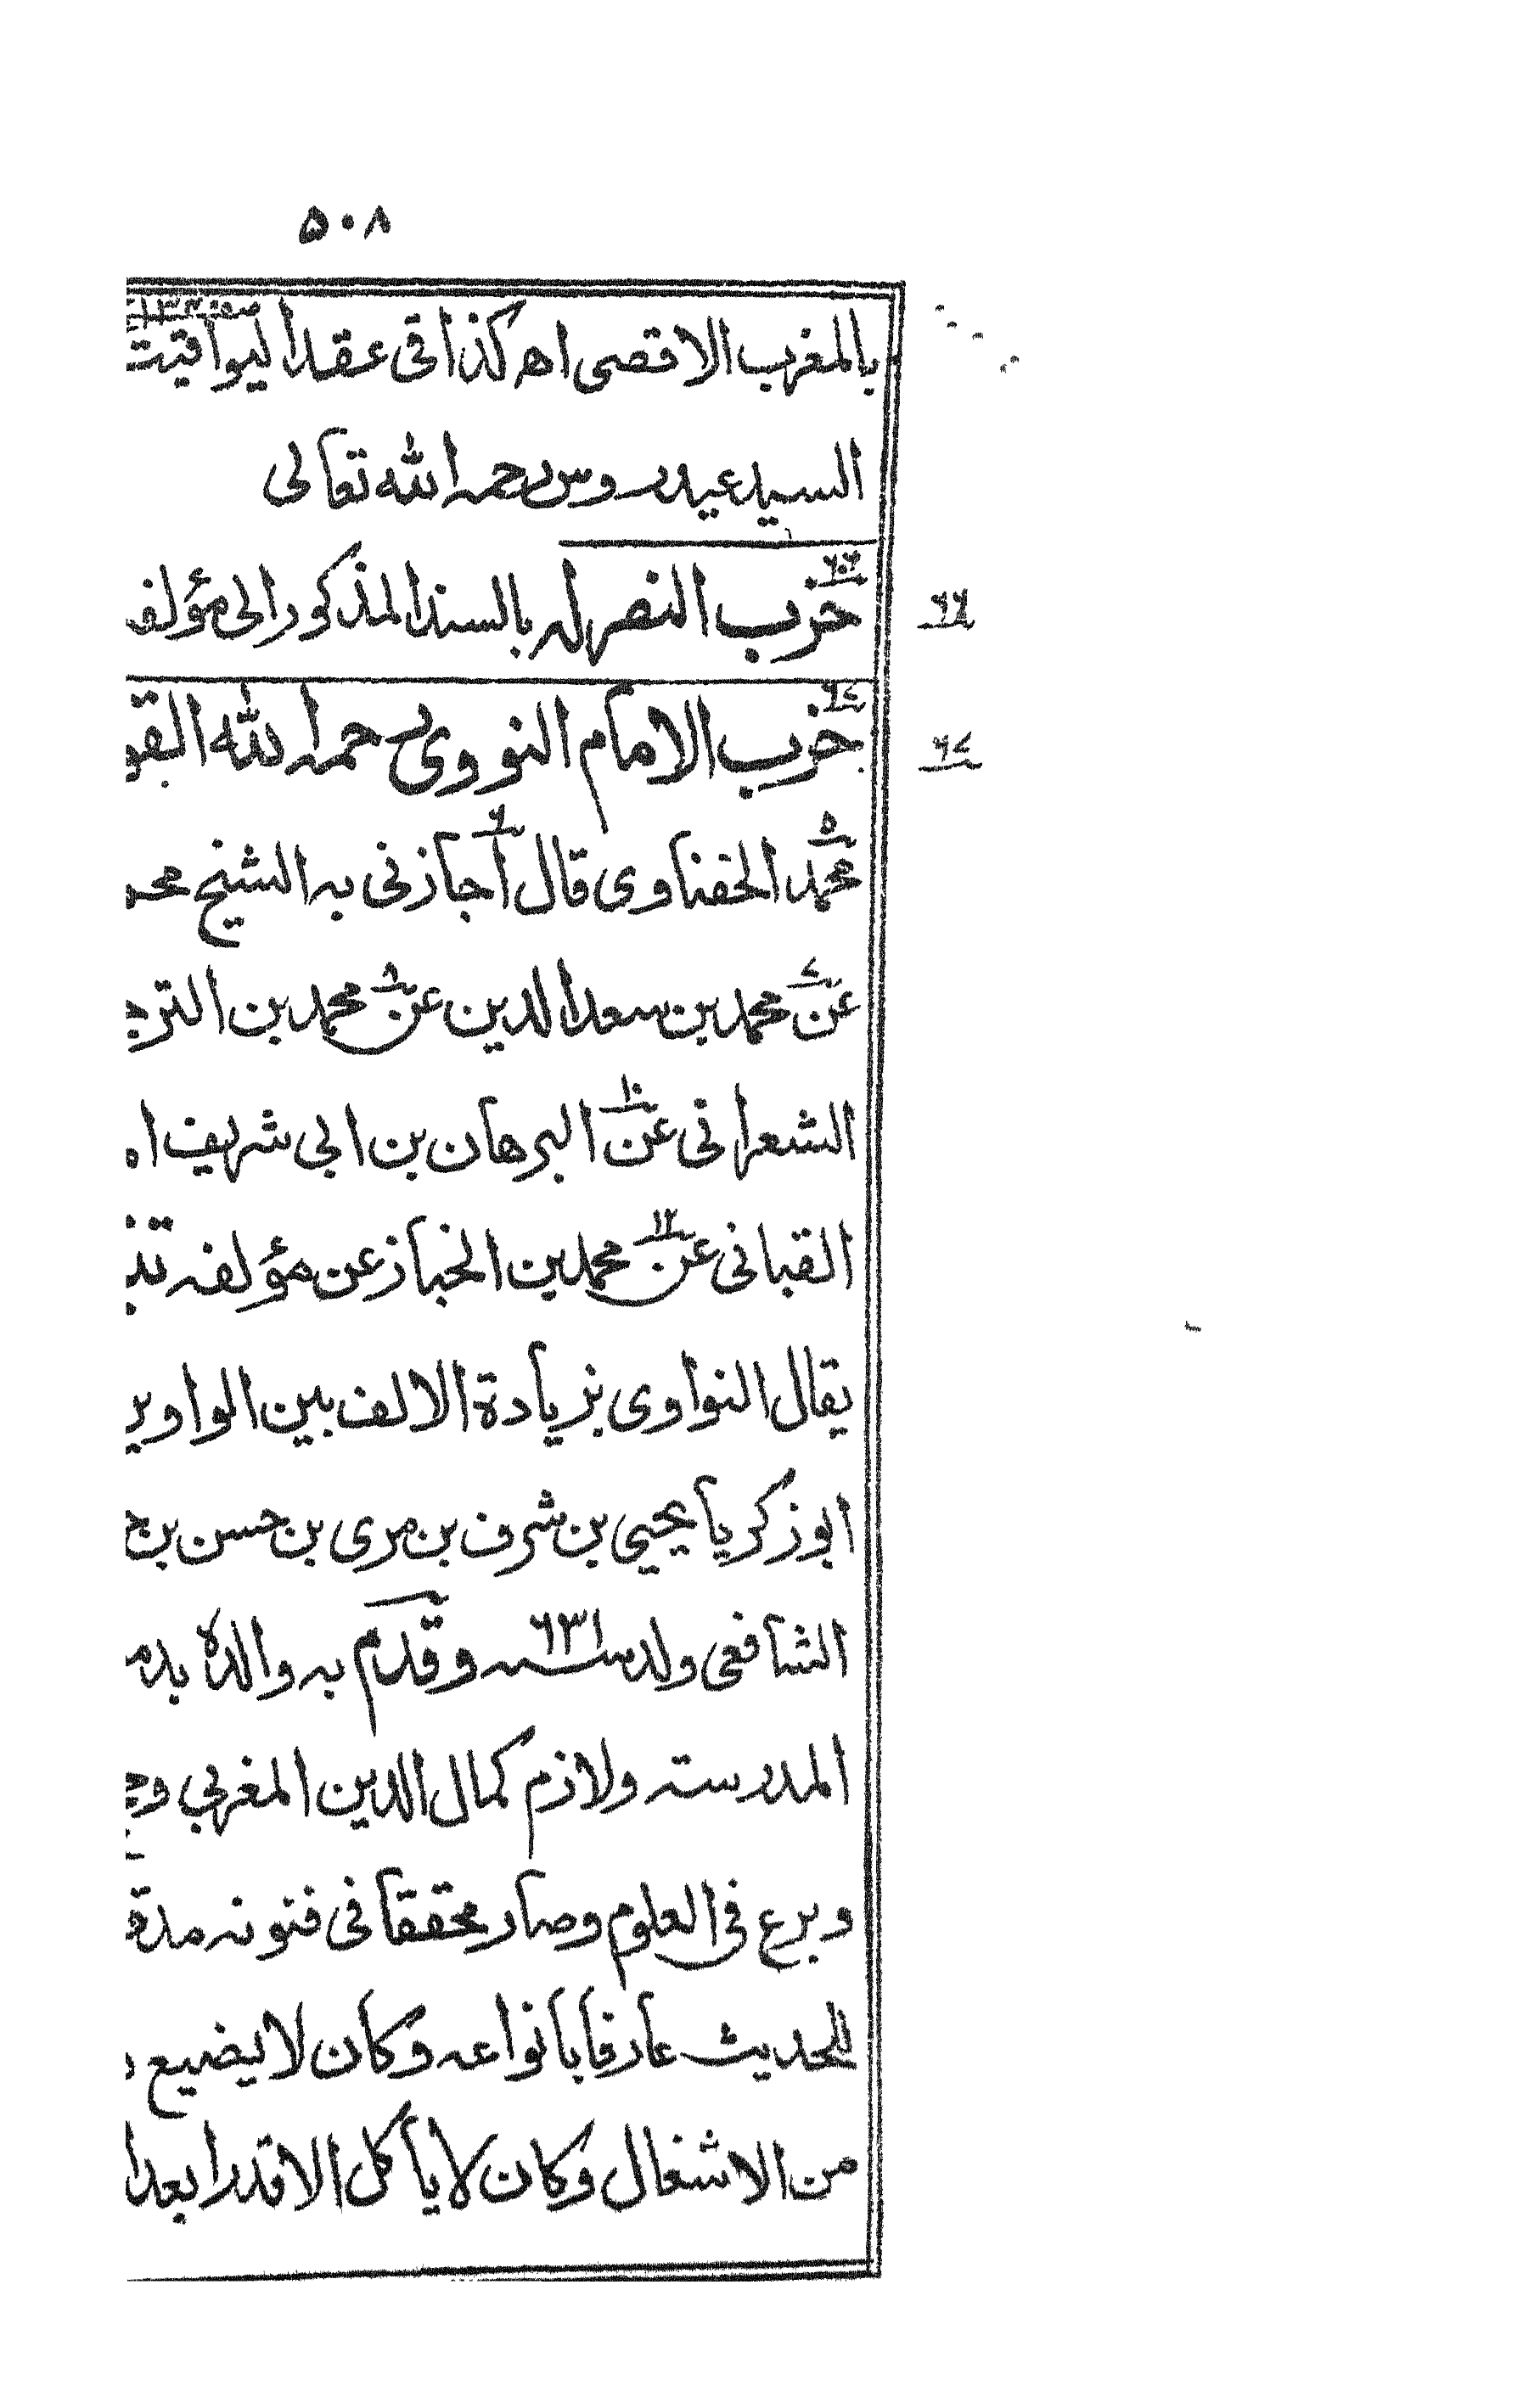 ٥٠٨
بالمغرب الاقصى اه كذا فى عقد اليواقيت
السيد عيدروس رحمه الله تعالى
٦٦
حزب النصر له بالسند المذكور الى مؤلف
٦٧
حزب الامام النووى رحمه الله
محمد الحفناوى قال اجازنى به الشيخ
عن محمد بن سعد الدين عن محمد بن
الشعرانى عن البرهان بن ابى شريف
القبانى عن محمد بن الخباز عن مؤلفه
يقال النواوى بزيادة الالف بين الواو
ابو زكريا يحيى بن شرف بن مرى بن حسن بن
الشافعى ولد سنه ٦٣١ وقدم به والده
المدرسته ولازم كمال الدين المغربي
وبرع فى العلوم وصار محققا فى فنونه
للحديث عارفا بانواعه وكان لا يضيع
من الاشغال وكان لا يأكل الا قدرا بعد